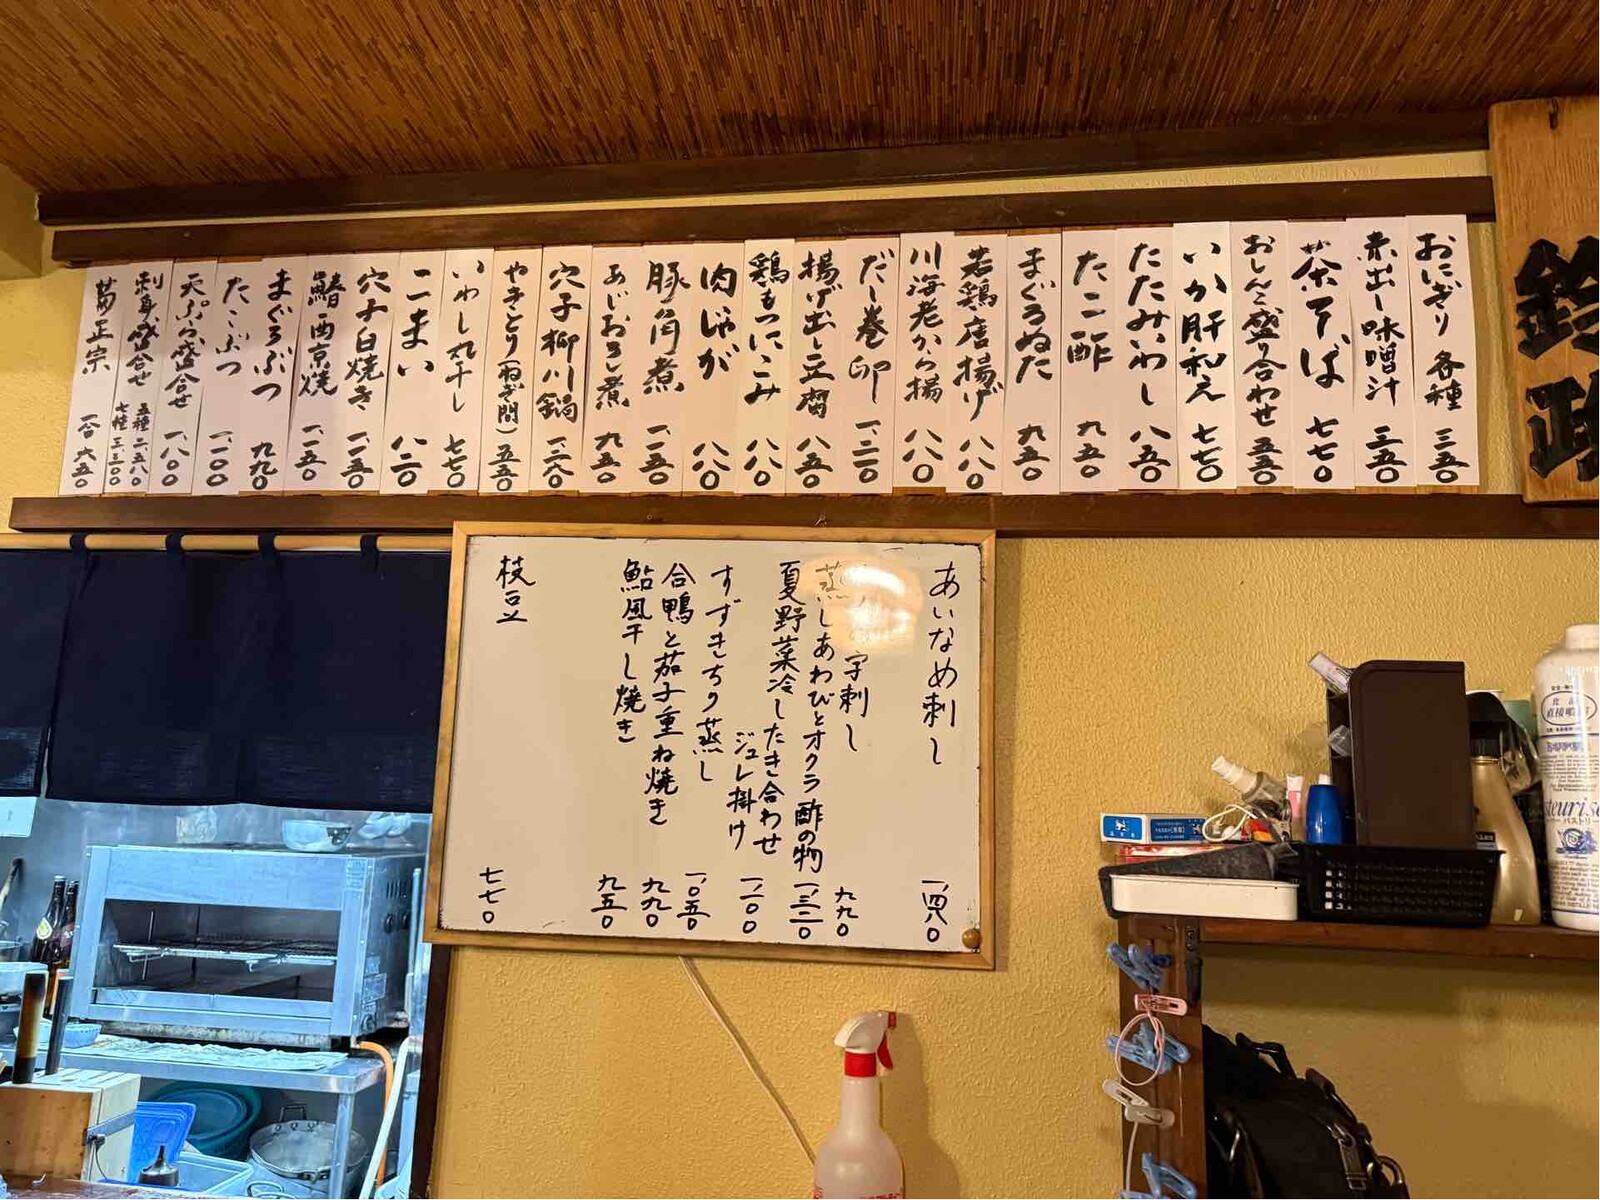 おにぎり 各種 三五〇
赤出し味噌汁 三五〇
茶そば 七七〇
おしんこ盛り合わせ 五五〇
いか肝和え 七七〇
たたみいわし 八五〇
たこ酢 九五〇
まぐろぬた 九五〇
若鶏唐揚げ 八八〇
川海老から揚 八八〇
だし巻卵
揚げ出し豆腐 八五〇
鶏もつにこみ 八八〇
肉じゃが 八八〇
豚角煮 一、一五〇
あじおろし煮 九五〇
穴子柳川鍋
やきとり(ねぎ間) 五五〇
いわし丸干し 七七〇
こまい 八二〇
穴子白焼き 一、一五〇
鰆西京焼 一、一五〇
まぐろぶつ 九九〇
たこぶつ 一、一〇〇
天ぷら盛合せ
刺身盛合せ 五種 二、五八〇
七種 三、三〇〇
菊正宗 一合 六五〇
鈴
政
あいなめ刺し 一、四八〇
字刺し 九九〇
蒸しあわびとオクラ酢の物 一、三二〇
夏野菜冷したき合わせ
ジュレ掛け 一、一〇〇
すずきちり蒸し 一、〇五〇
合鴨と茄子重ね焼き 九九〇
鮎風干し焼き 九五〇
枝豆 七七〇
直接噴霧
パストリー